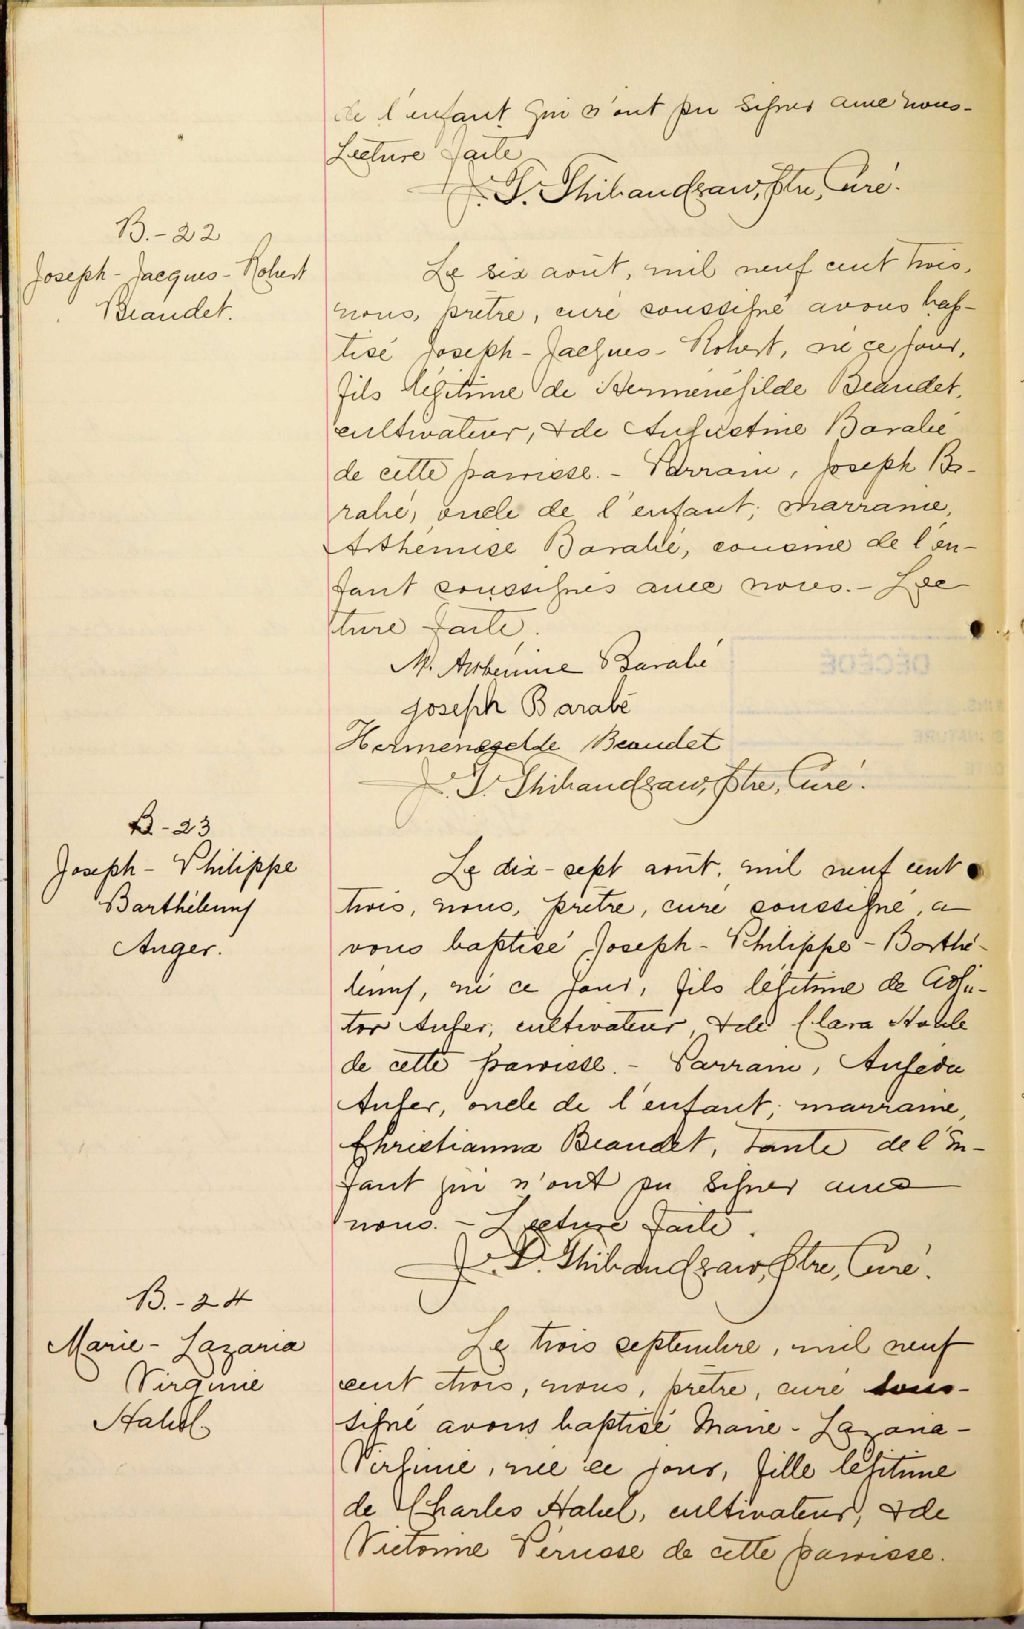 de l'enfant qui n'ont pu signer avec nous.-
Lecture faite
J. T. Thibaudeau, Ptre, Curé.
B.-22
Joseph-Jacques-Robert
Beaudet.
Le six août, mil neuf cent trois,
nous, prêtre, curé soussigné avons bap-
tisé Joseph-Jacques-Robert, né ce jour,
fils légitime de Herménégilde Beaudet,
cultivateur, & de Augustine Barabé
de cette paroisse.- Parrain, Joseph Ba-
rabé, oncle de l'enfant; marraine,
Arthémise Barabé, cousine de l'en-
fant soussignés avec nous.- Lec
ture faite.
M. Arthémise Barabé
Joseph Barabé
Hermenegelde Beaudet
J. T. Thibaudeau, Ptre, Curé.
DÉCÉDÉ
B-23
Joseph-Philippe
Barthélemy
Auger.
Le dix-sept août, mil neuf cent
trois, nous, prêtre, curé soussigné, a
vons baptisé Joseph-Philippe-Barthé-
lemy, né ce jour, fils légitime de Adju-
tor Auger, cultivateur, & de Clara Houle
de cette paroisse.- Parrain,
Auger, oncle de l'enfant; marraine,
Christianna Beaudet, tante de l'en-
fant qui n'ont pu signer avec
nous.- Lecture faite.
J. T. Thibaudeau, Ptre, Curé.
B.-24
Marie-Lazaria
Virginie
Habel
Le trois septembre, mil neuf
cent trois, nous, prêtre, curé sous-
signé avons baptisé Marie-Lazaria-
Virginie, née ce jour, fille légitime
de Charles Habel, cultivateur, & de
Victorine Pérusse de cette paroisse.